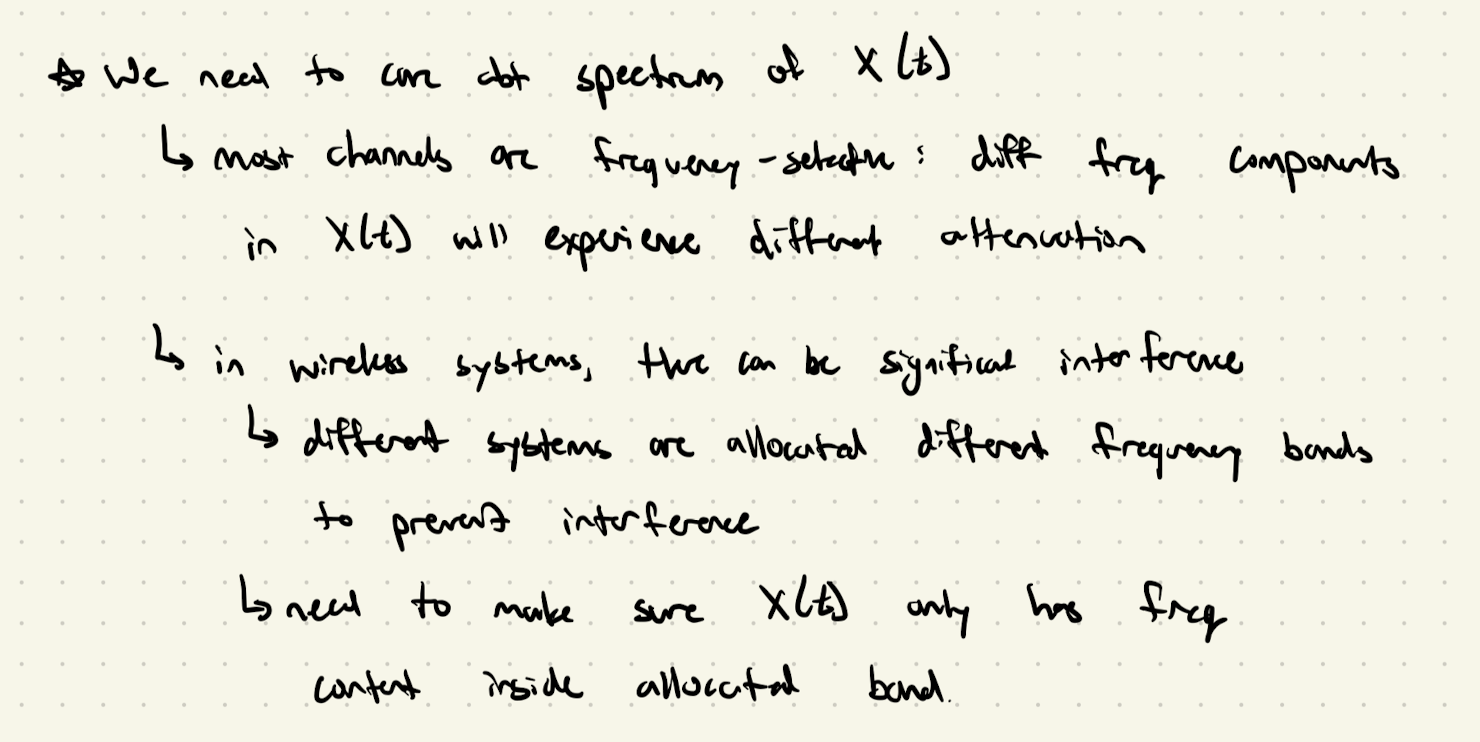 ☆ We need to care abt spectrum of X(t)
↳ most channels are frequency-selective: diff freq components
in X(t) will experience different attenuation
↳ in wireless systems, there can be significant interference
↳ different systems are allocated different frequency bands
to prevent interference
↳ need to make sure X(t) only has freq
content inside allocated band.